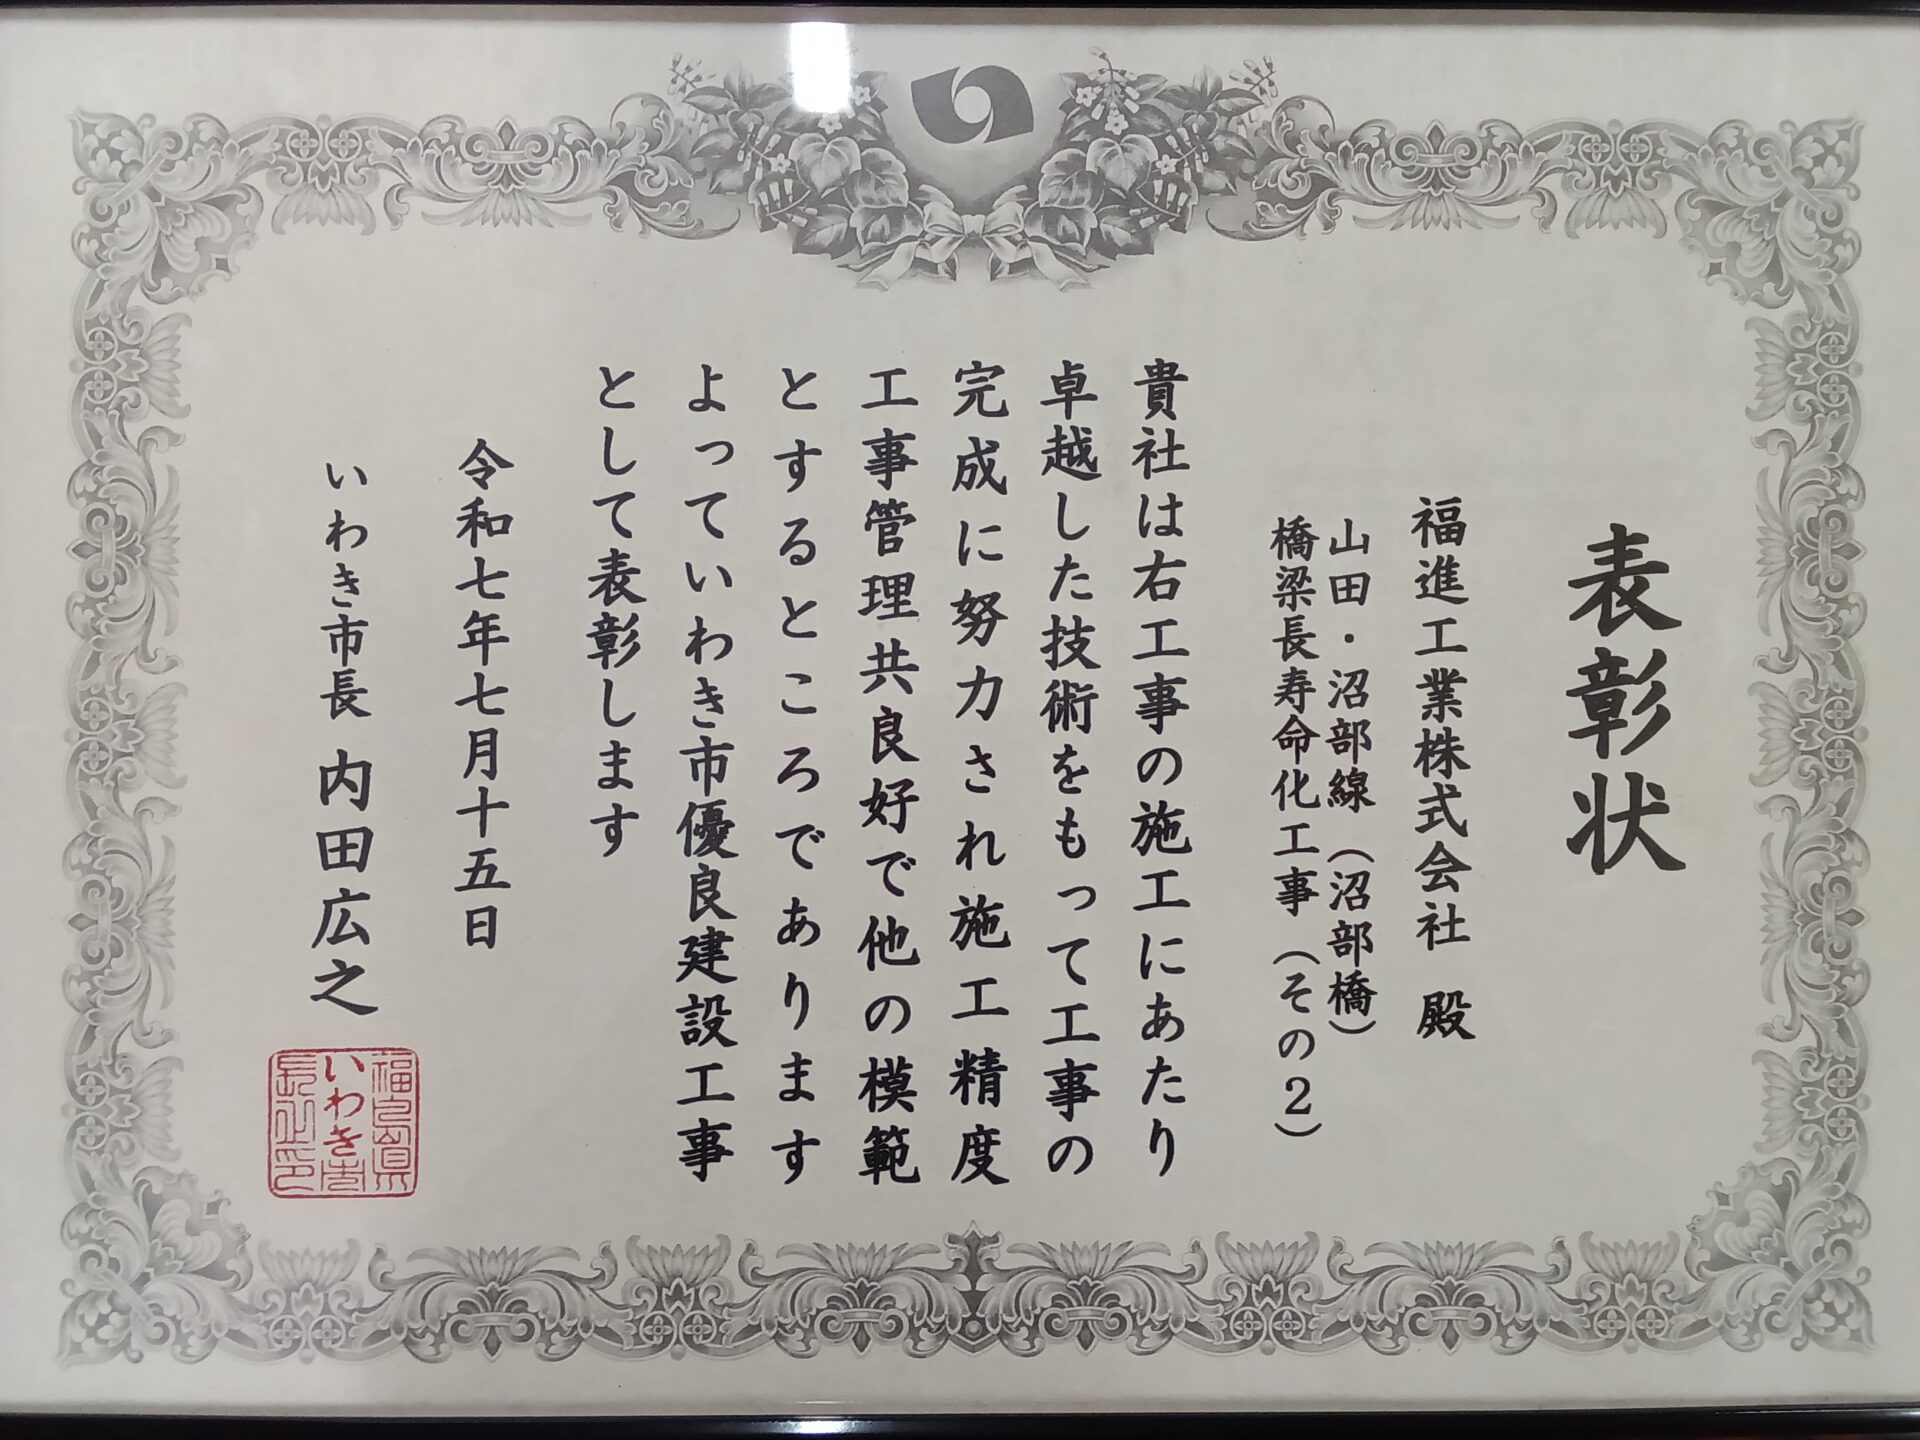 表彰状
福進工業株式会社 殿
山田・沼部線（沼部橋）
橋梁長寿命化工事（その２）
貴社は右工事の施工にあたり
卓越した技術をもって工事の
完成に努力され施工精度
工事管理共良好で他の模範
とするところであります
よっていわき市優良建設工事
として表彰します
令和七年七月十五日
いわき市長 内田広之
福島県
いわき市
長之印